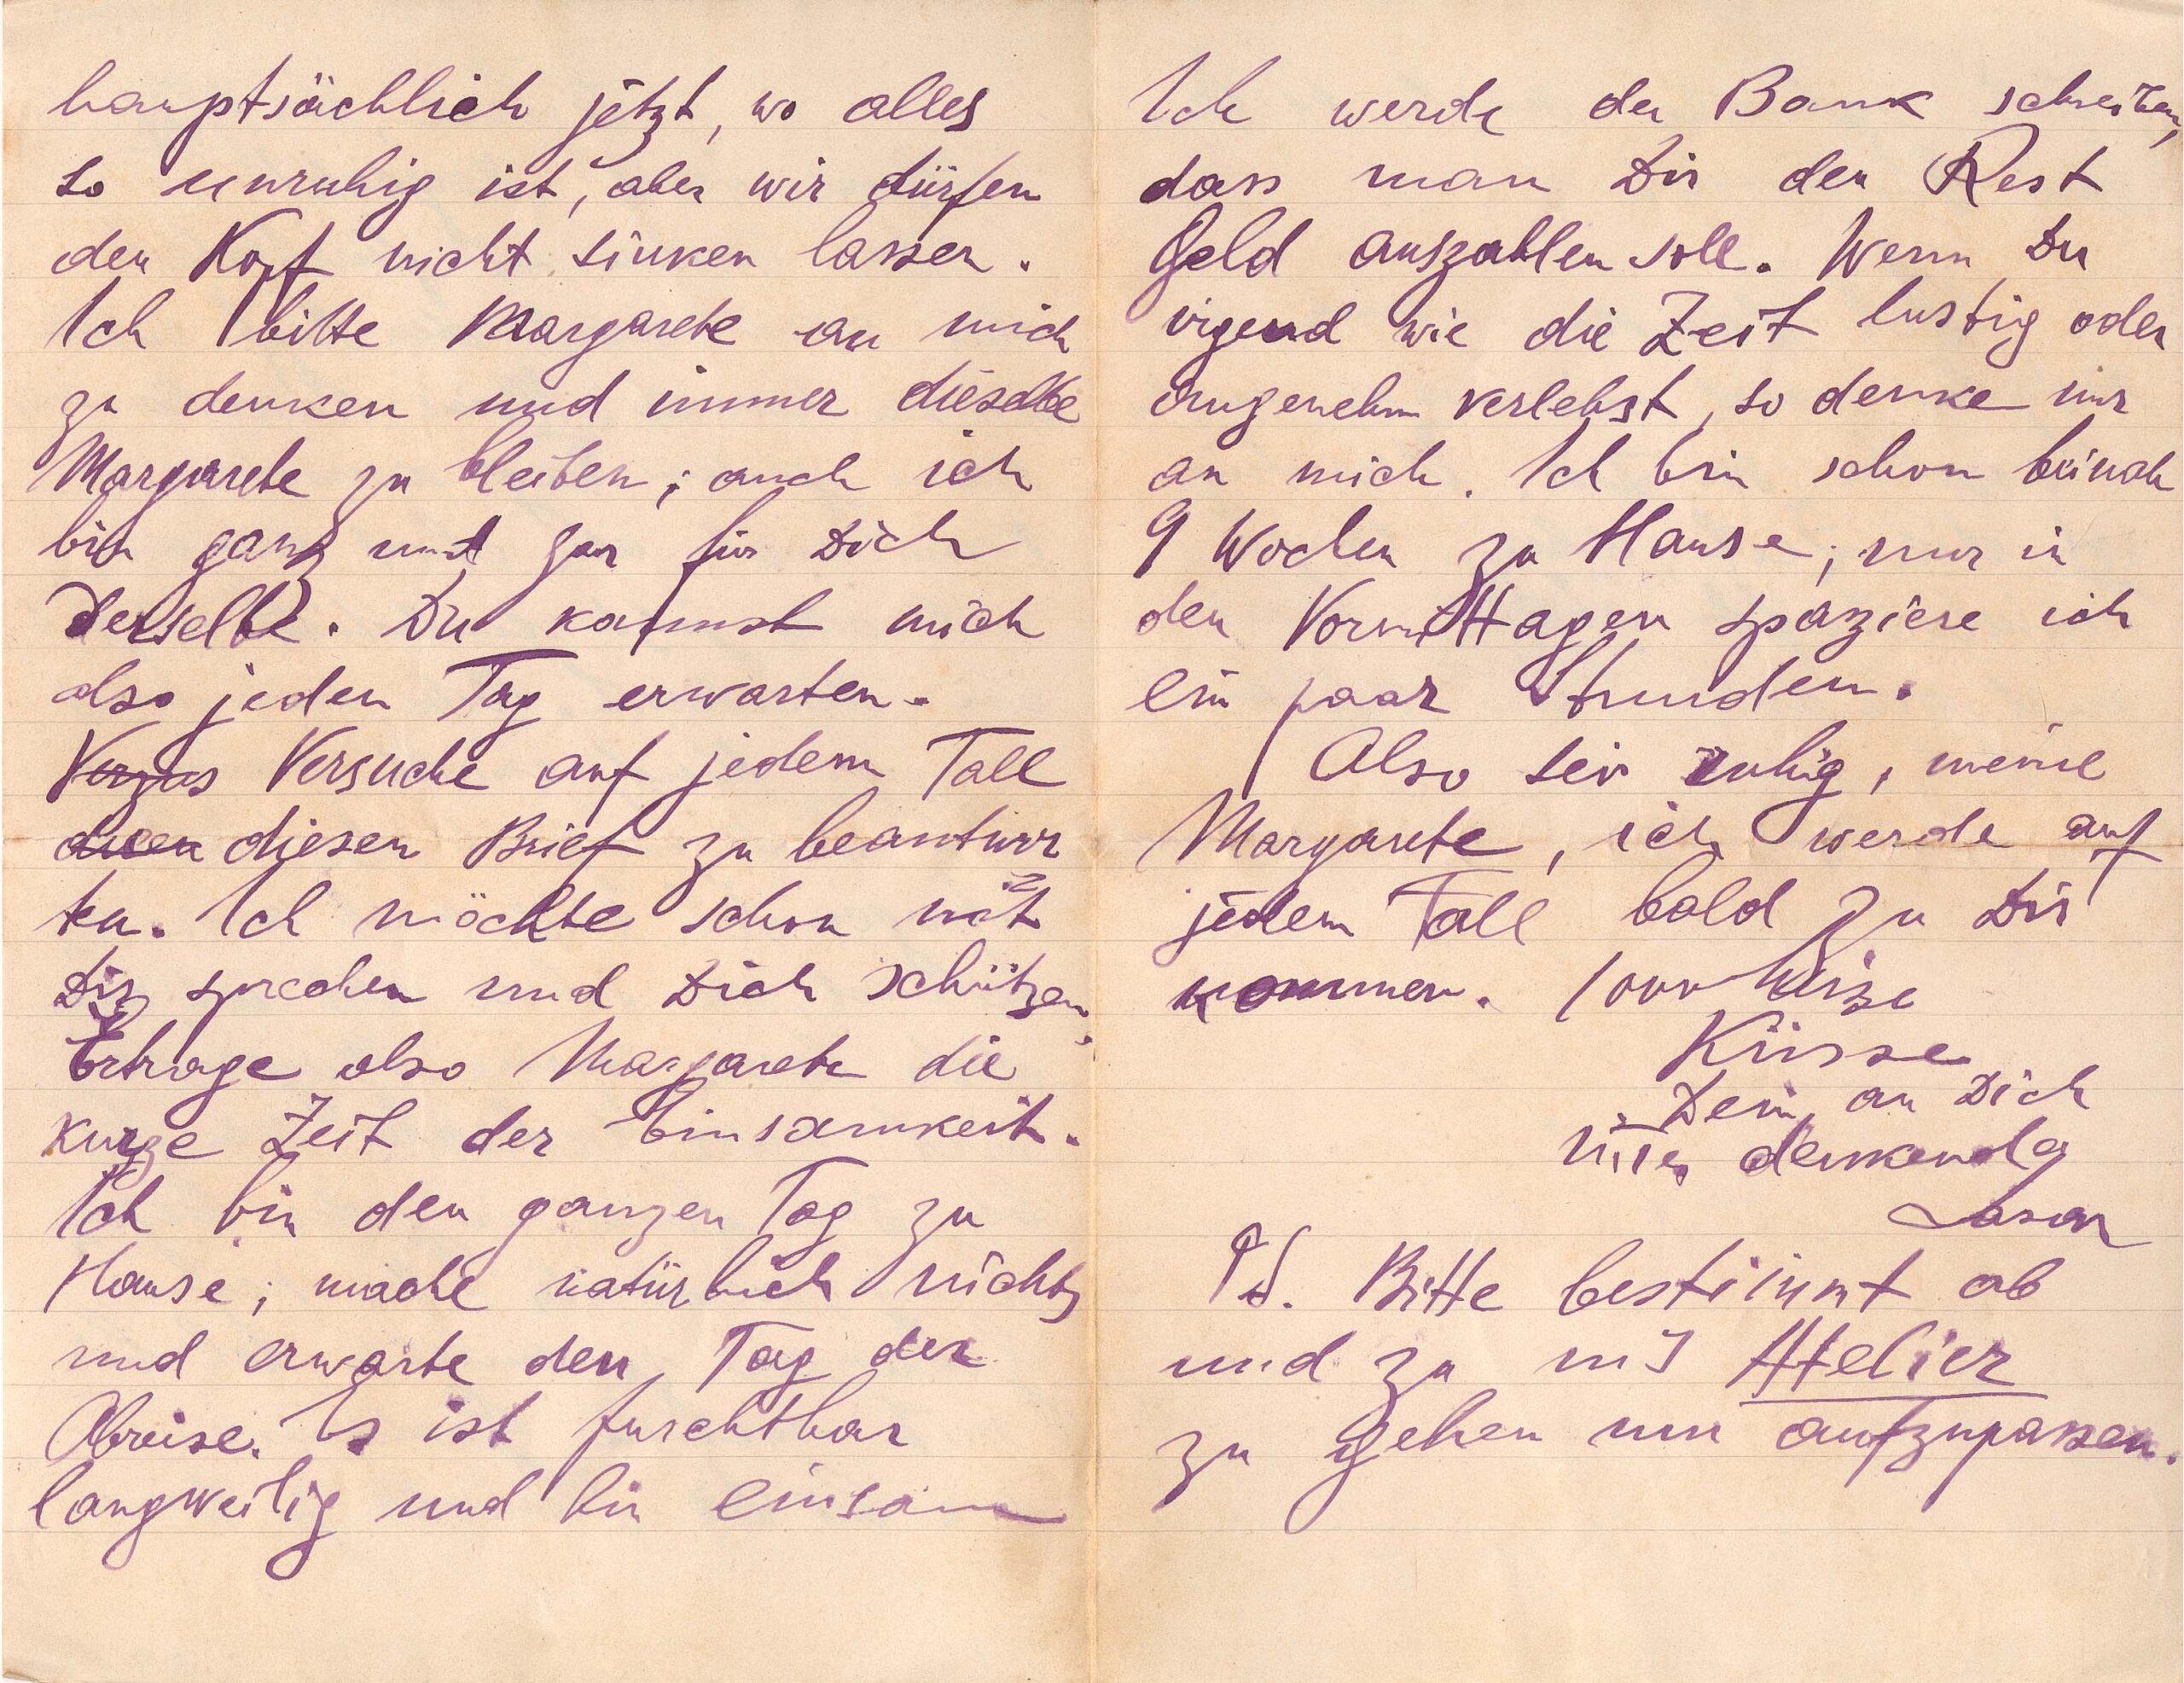 hauptsächlich jetzt, wo alles
so unruhig ist, aber wir dürfen
den Kopf nicht sinken lassen.
Ich bitte Margarete an mich
zu denken und immer dieselbe
Margarete zu bleiben; auch ich
bin ganz und gar für Dich
Derselbe. Du kannst mich
also jeden Tag erwarten.
Versuche auf jedem Fall
diesen Brief zu beantwor
ten. Ich möchte schon mit
Dir sprechen und Dich schützen.
Ertrage also Margarete die
kurze Zeit der Einsamkeit.
Ich bin den ganzen Tag zu
Hause; mache natürlich nichts
und erwarte den Tag der
Abreise. Es ist furchtbar
langweilig und bin einsam
Ich werde der Bank schreiben,
dass man Dir den Rest
Geld auszahlen soll. Wenn Du
irgend wie die Zeit lustig oder
angenehm verlebst, so denke nur
an mich. Ich bin schon beinah
9 Wochen zu Hause; nur in
den Vormittagen spaziere ich
ein paar Stunden.
Also sei ruhig, meine
Margarete, ich werde auf
jedem Fall bald zu Dir
kommen. 1000 heise
Küsse
Dein an Dich
denkende
PS. Bitte bestimmt ab
und zu ins Atelier
zu gehen um aufzupassen.